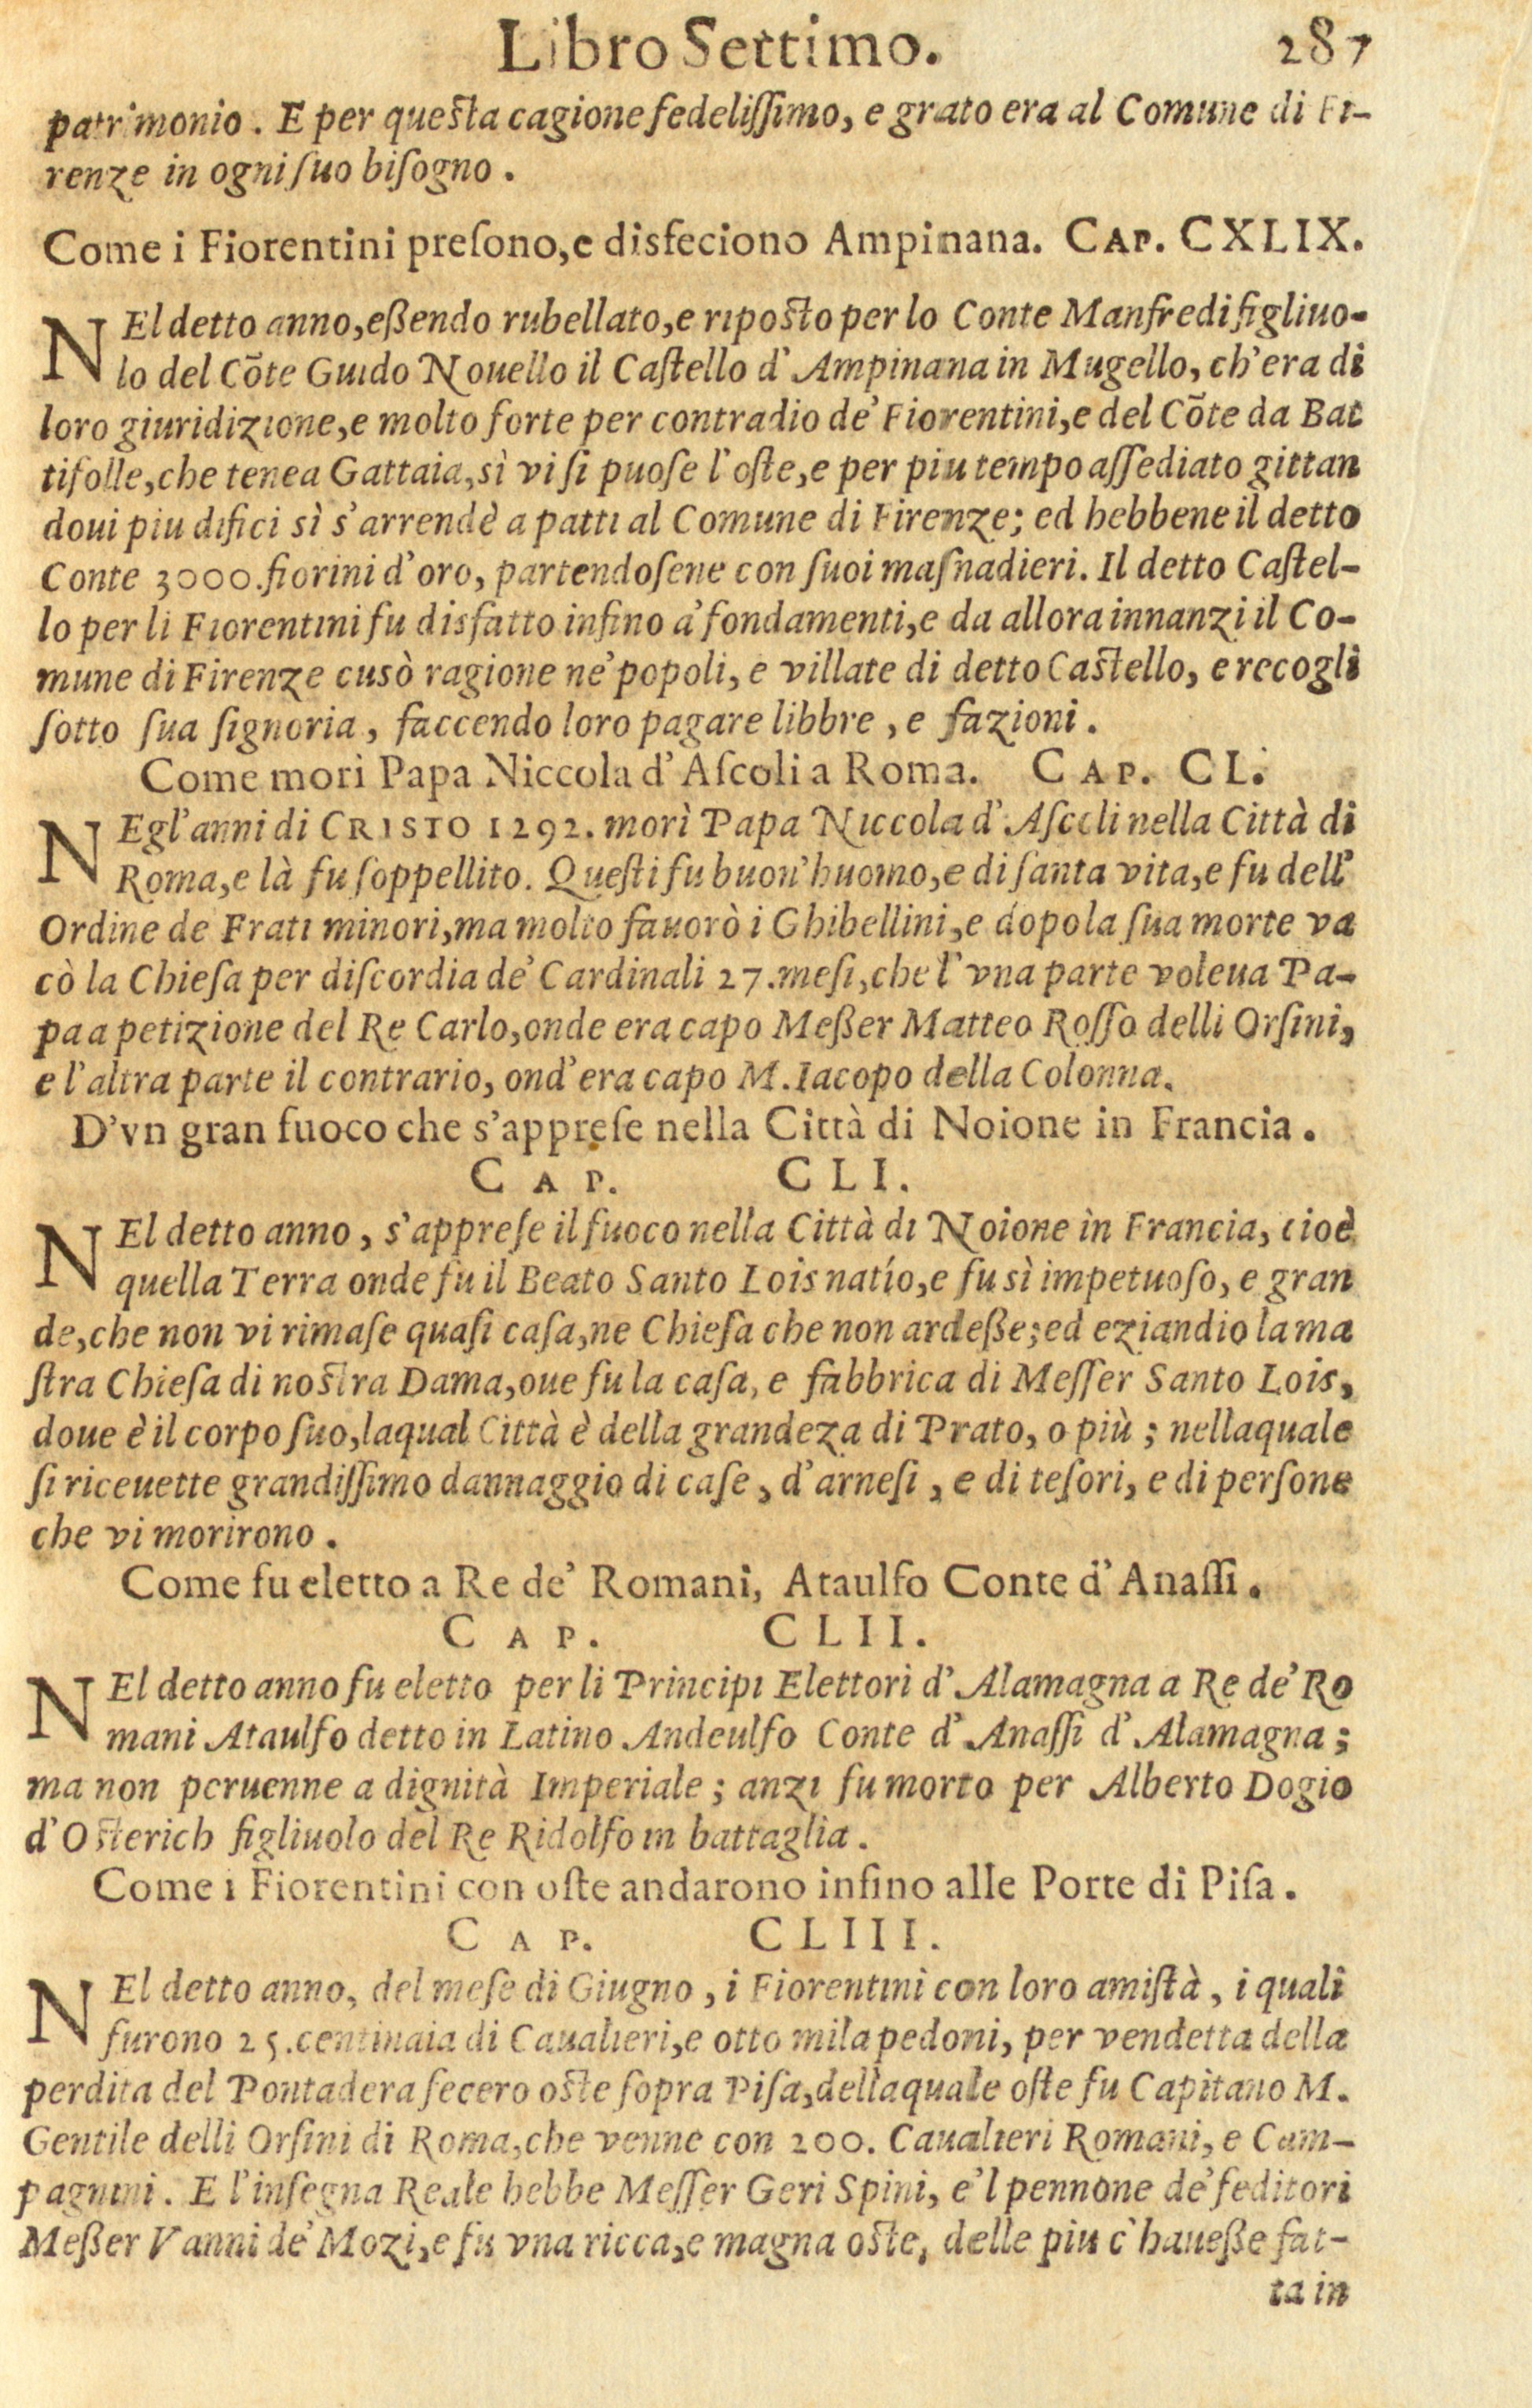 Libro Settimo. 287
patrimonio. E per questa cagione fedeliſſimo, e grato era al Comune di Fi-
renze in ogni ſuo biſogno.
Come i Fiorentini preſono, e disfeciono Ampinana. CAP. CXLIX.
NEl detto anno, eßendo rubellato, e riposto per lo Conte Manfredi figliuo-
lo del Cõte Guido Nouello il Caſtello d'Ampinana in Mugello, ch'era di
loro giuridizione, e molto forte per contradio de' Fiorentini, e del Cõte da Bat
tifolle, che tenea Gattaia, sì vi ſi puoſe l'oſte, e per piu tempo aſſediato gittan
doui piu difici sì s'arrendè a patti al Comune di Firenze; ed hebbene il detto
Conte 3000. fiorini d'oro, partendoſene con ſuoi maſnadieri. Il detto Caſtel-
lo per li Fiorentini fu disfatto infino a' fondamenti, e da allora innanzi il Co-
mune di Firenze cusò ragione ne' popoli, e villate di detto Castello, e recogli
ſotto ſua ſignoria, faccendo loro pagare libbre, e fazioni.
Come mori Papa Niccola d'Aſcoli a Roma. CAP. CL.
NEgl'anni di CRISTO 1292. morì Papa Niccola d'Aſcoli nella Città di
Roma, e là fu ſoppellito. Queſti fu buon'huomo, e di ſanta vita, e fu dell'
Ordine de Frati minori, ma molto fauorò i Ghibellini, e dopo la ſua morte va
cò la Chieſa per diſcordia de' Cardinali 27. meſi, che l'vna parte voleua Pa-
pa a petizione del Re Carlo, onde era capo Meßer Matteo Roſſo delli Orſini,
e l'altra parte il contrario, ond'era capo M. Iacopo della Colonna.
D'vn gran fuoco che s'appreſe nella Città di Noione in Francia.
CAP. CLI.
NEl detto anno, s'appreſe il fuoco nella Città di Noione in Francia, cioè
quella Terra onde fu il Beato Santo Lois natío, e fu sì impetuoſo, e gran
de, che non vi rimaſe quaſi caſa, ne Chieſa che non ardeße; ed eziandio la ma
ſtra Chieſa di nostra Dama, oue fu la caſa, e fabbrica di Meſſer Santo Lois,
doue è il corpo ſuo, laqual Città è della grandeza di Prato, o più; nellaquale
ſi riceuette grandiſſimo dannaggio di caſe, d'arneſi, e di teſori, e di perſone
che vi morirono.
Come fu eletto a Re de' Romani, Ataulfo Conte d'Anaſſi.
CAP. CLII.
NEl detto anno fu eletto per li Principi Elettori d'Alamagna a Re de' Ro
mani Ataulfo detto in Latino Andeulfo Conte d'Anaſſi d'Alamagna;
ma non peruenne a dignità Imperiale; anzi fu morto per Alberto Dogio
d'Osterich figliuolo del Re Ridolfo in battaglia.
Come i Fiorentini con oſte andarono infino alle Porte di Piſa.
CAP. CLIII.
NEl detto anno, del meſe di Giugno, i Fiorentini con loro amiſtà, i quali
furono 25. centinaia di Caualieri, e otto mila pedoni, per vendetta della
perdita del Pontadera fecero oste ſopra Piſa, dellaquale oſte fu Capitano M.
Gentile delli Orſini di Roma, che venne con 200. Caualieri Romani, e Cam-
pagnini. E l'inſegna Reale hebbe Meſſer Geri Spini, e'l pennone de' feditori
Meßer Vanni de' Mozi, e fu vna ricca, e magna oste, delle piu c'haueße fat-
ta in